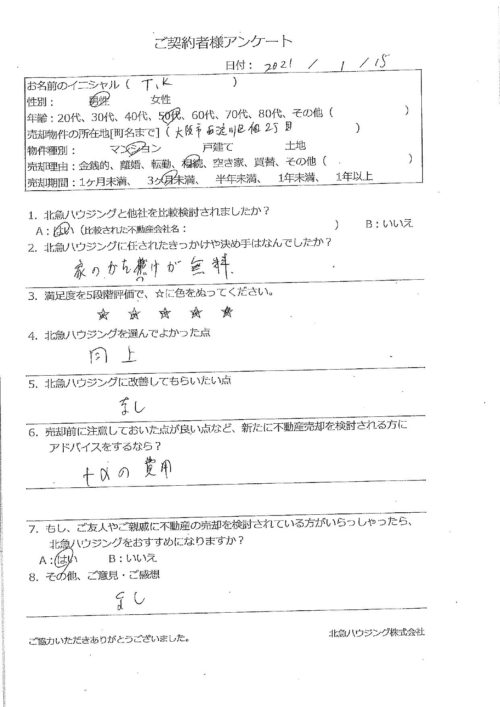 ご契約者様アンケート
日付: 2021 / 1 / 15
お名前のイニシャル ( T.K )
性別: 男性 女性
年齢: 20代、30代、40代、50代、60代、70代、80代、その他 ( )
売却物件の所在地[町名まで] ( 大阪市西淀川区佃2丁目 )
物件種別: マンション 戸建て 土地
売却理由: 金銭的、離婚、転勤、相続、空き家、買替、その他 ( )
売却期間: 1ヶ月未満、 3ヶ月未満、 半年未満、 1年未満、 1年以上
1. 北急ハウジングと他社を比較検討されましたか?
A: はい (比較された不動産会社名: ) B: いいえ
2. 北急ハウジングに任されたきっかけや決め手はなんでしたか?
家のかた付けが無料
3. 満足度を5段階評価で、☆に色をぬってください。
★ ★ ★ ★ ★
4. 北急ハウジングを選んでよかった点
同上
5. 北急ハウジングに改善してもらいたい点
なし
6. 売却前に注意しておいた点が良い点など、新たに不動産売却を検討される方に
アドバイスをするなら?
+αの費用
7. もし、ご友人やご親戚に不動産の売却を検討されている方がいらっしゃったら、
北急ハウジングをおすすめになりますか?
A: はい B: いいえ
8. その他、ご意見・ご感想
なし
ご協力いただきありがとうございました。 北急ハウジング株式会社